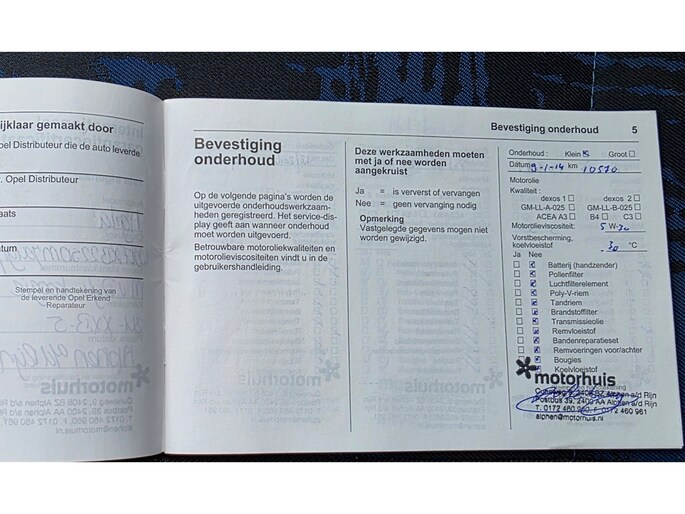 ijklaar gemaakt door
pel Distributeur die de auto leverde
. Opel Distributeur
aats
atum
Stempel en handtekening van
de leverende Opel Erkend
Reparateur
Bevestiging onderhoud 5
Bevestiging
onderhoud
Op de volgende pagina's worden de
uitgevoerde onderhoudswerkzaam-
heden geregistreerd. Het service-dis-
play geeft aan wanneer onderhoud
moet worden uitgevoerd.
Betrouwbare motoroliekwaliteiten en
motorolieviscositeiten vindt u in de
gebruikershandleiding.
Deze werkzaamheden moeten
met ja of nee worden
aangekruist
Ja = is ververst of vervangen
Nee = geen vervanging nodig
Opmerking
Vastgelegde gegevens mogen niet
worden gewijzigd.
Onderhoud: Klein Groot
Datum 9-1-14 km 10570
Motorolie
Kwaliteit:
dexos 1 dexos 2
GM-LL-A-025 GM-LL-B-025
ACEA A3 B4 C3
Motorolieviscositeit: 5 W-30
Vorstbescherming,
koelvloeistof -30 °C
Ja Nee
Batterij (handzender)
Pollenfilter
Luchtfilterelement
Poly-V-riem
Tandriem
Brandstoffilter
Transmissieolie
Remvloeistof
Bandenreparatieset
Remvoeringen voor/achter
Bougies
Koelvloeistof
motorhuis
2408 BZ Alphen a/d Rijn
Postbus 39, 2400 AA Alphen a/d Rijn
T. 0172 460 960, F. 0172 460 961
alphen@motorhuis.nl